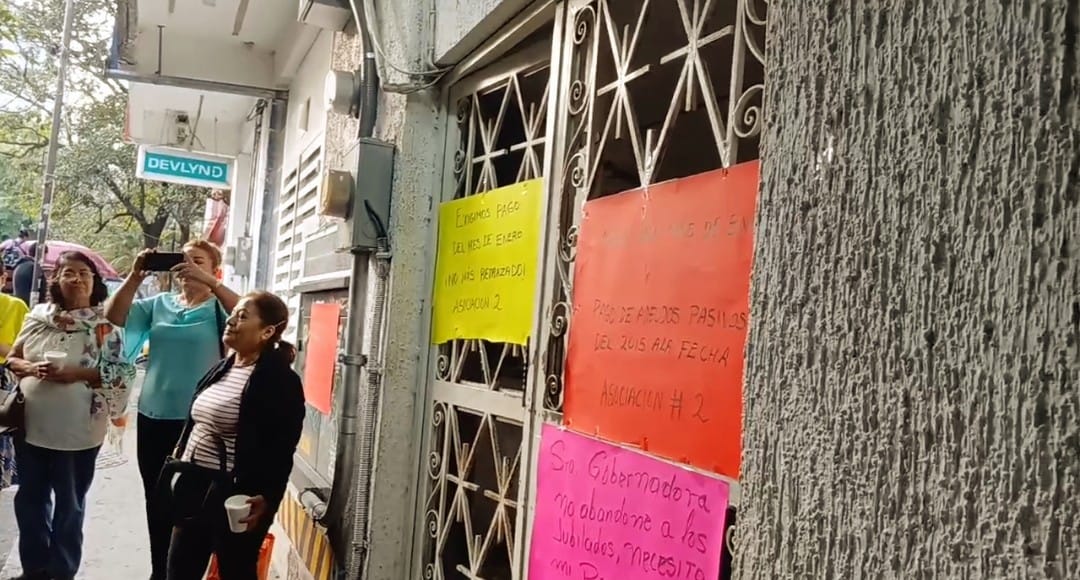 DEVLYN
EXIGIMOS PAGO
DEL MES DE ENERO
¡NO MÁS RETRAZADO!
ASOCIACION 2
DE EN
Y
PAGO DE ADEUDOS PASIVOS
DEL 2015 A LA FECHA
ASOCIACION # 2
Sra. Gobernadora
no abandone a los
Jubilados, necesito
mi